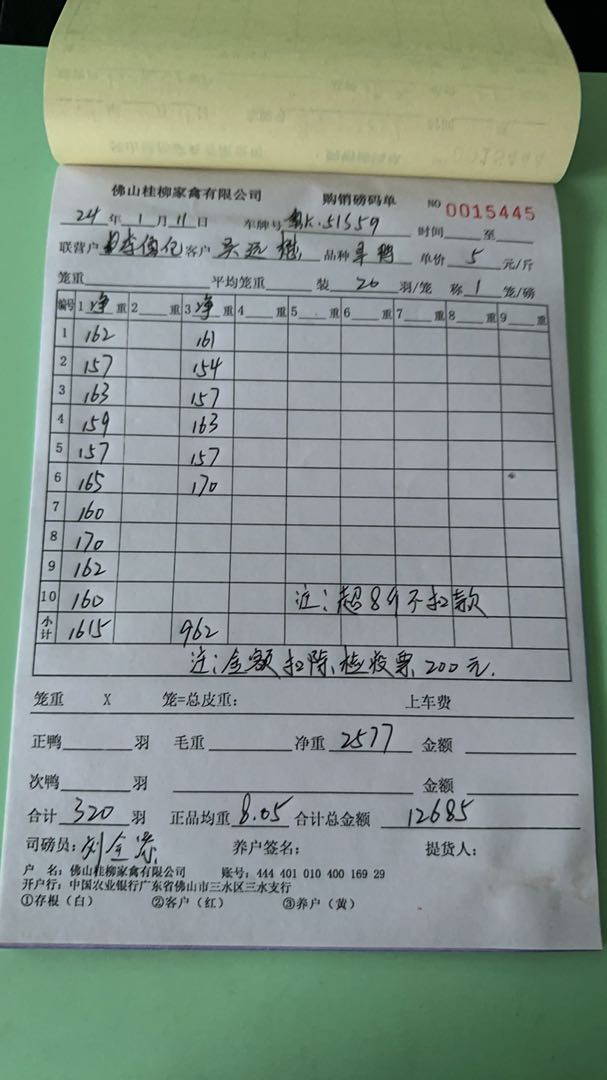 佛山桂柳家禽有限公司 购销磅码单 NO 0015445
24年1月11日 车牌号 粤K·51359 时间 至
联营户 客户 吴远 品种 单价 5 元/斤
笼重 平均笼重 装 20 羽/笼 称 1 笼/磅
编号 1 净 重 2 重 3 净 重 4 重 5 重 6 重 7 重 8 重 9 重
1 162 161
2 157 154
3 163 157
4 159 163
5 157 157
6 165 170
7 160
8 170
9 162
10 160 注:超8斤不扣款
小计 1615 962
注:金额扣除检疫票200元.
笼重 X 笼=总皮重: 上车费
正鸭 羽 毛重 净重 2577 金额
次鸭 羽 金额
合计 320 羽 正品均重 8.05 合计总金额 12685
司磅员: 刘金 养户签名: 提货人:
户 名: 佛山桂柳家禽有限公司 账号: 444 401 010 400 169 29
开户行: 中国农业银行广东省佛山市三水区三水支行
①存根(白) ②客户(红) ③养户(黄)